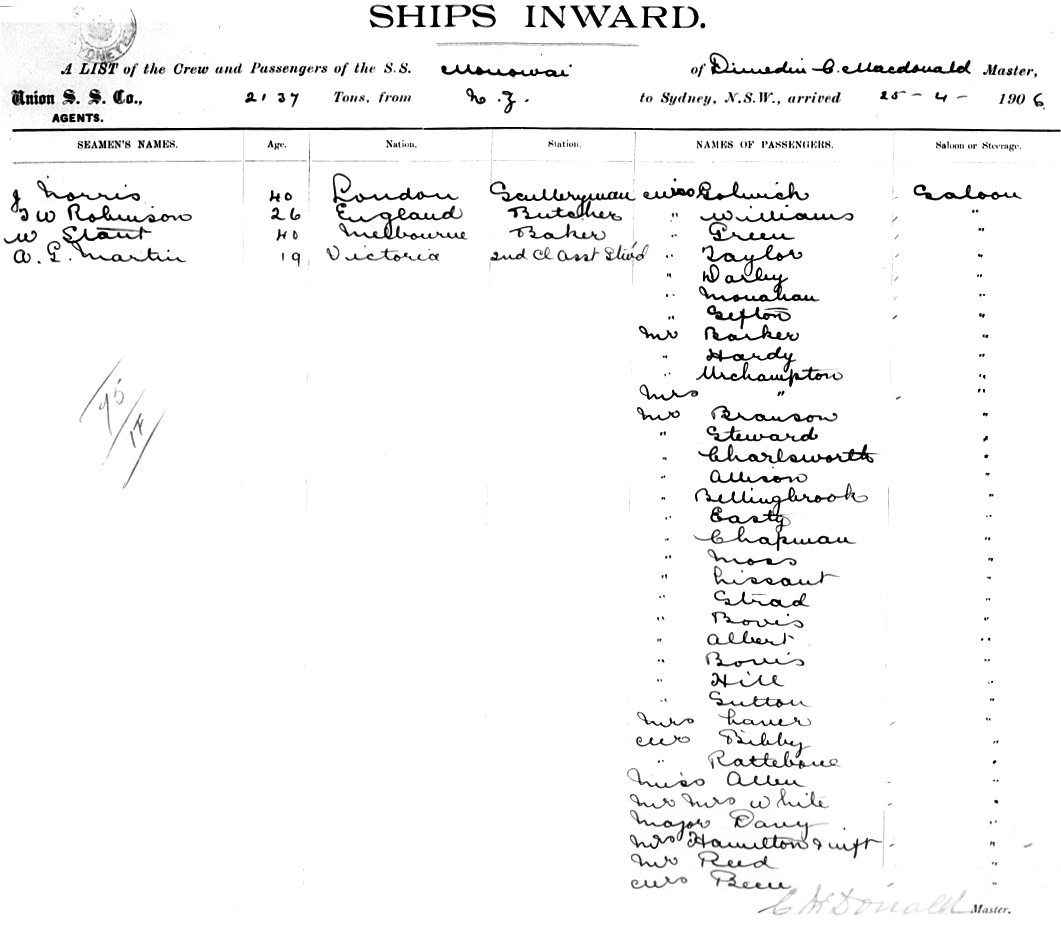 SHIPS INWARD.
A LIST of the Crew and Passengers of the S.S. Monowai of Dunedin C. Macdonald Master,
Union S. S. Co., 2137 Tons, from N.Z. to Sydney, N.S.W., arrived 25 - 4 - 1906
AGENTS.
SEAMEN'S NAMES. Age. Nation. Station. NAMES OF PASSENGERS. Saloon or Steerage.
J Norris 40 London Sculleryman Miss Golwich Saloon
T W Robinson 26 England Butcher " Williams "
W Stant 40 Melbourne Baker " Green "
A. G. Martin 19 Victoria 2nd Cl Asst Stwd " Taylor "
" Darby "
" Monahan "
" Sefton "
Mr Barker "
" Hardy "
" Urchampton "
Mrs " "
Mr Branson "
" Steward "
" Charlsworth "
" Allison "
" Bellingbrook "
" Easty "
" Chapman "
" Moss "
" Lissant "
" Strad "
" Bovis "
" Albert "
" Bovis "
" Hill "
" Sutton "
Mrs Laver "
Mr Bibby "
" Rattebone "
Miss Allen "
Mr Mrs White "
Major Davy "
Mrs Hamilton & inft "
Mr Reed "
Mrs "
95/17
C McDonald Master.